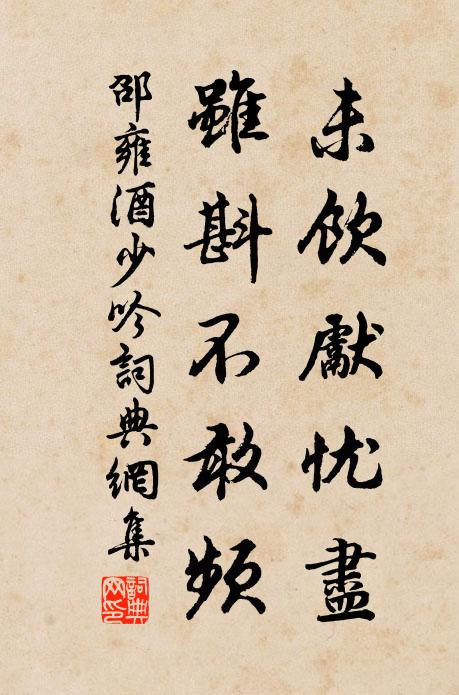 未飲獻忧盡
雖斟不敢頻
邵雍酒少吟詞典網集
詞典網印